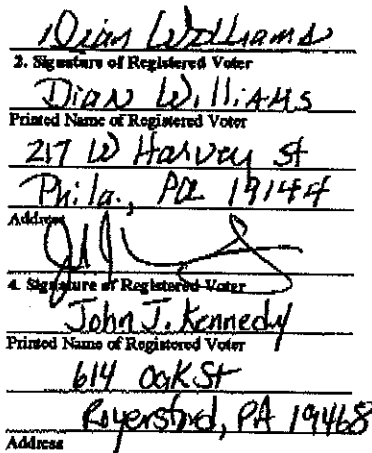 Dian Williams
2. Signature of Registered Voter
Dian Williams
Printed Name of Registered Voter
217 W Harvey St
Phila., PA 19144
Address
4. Signature of Registered Voter
John J. Kennedy
Printed Name of Registered Voter
614 Oak St
Royersford, PA 19468
Address